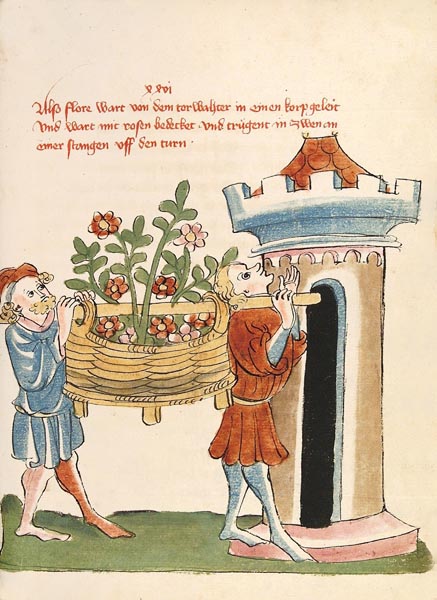 xxvi
Alß flore wart von dem torwahter in einen korp geleit
Vnd wart mit rosen bedecket · vnd trůgent in zwen an
einer stangen vff den turn ·